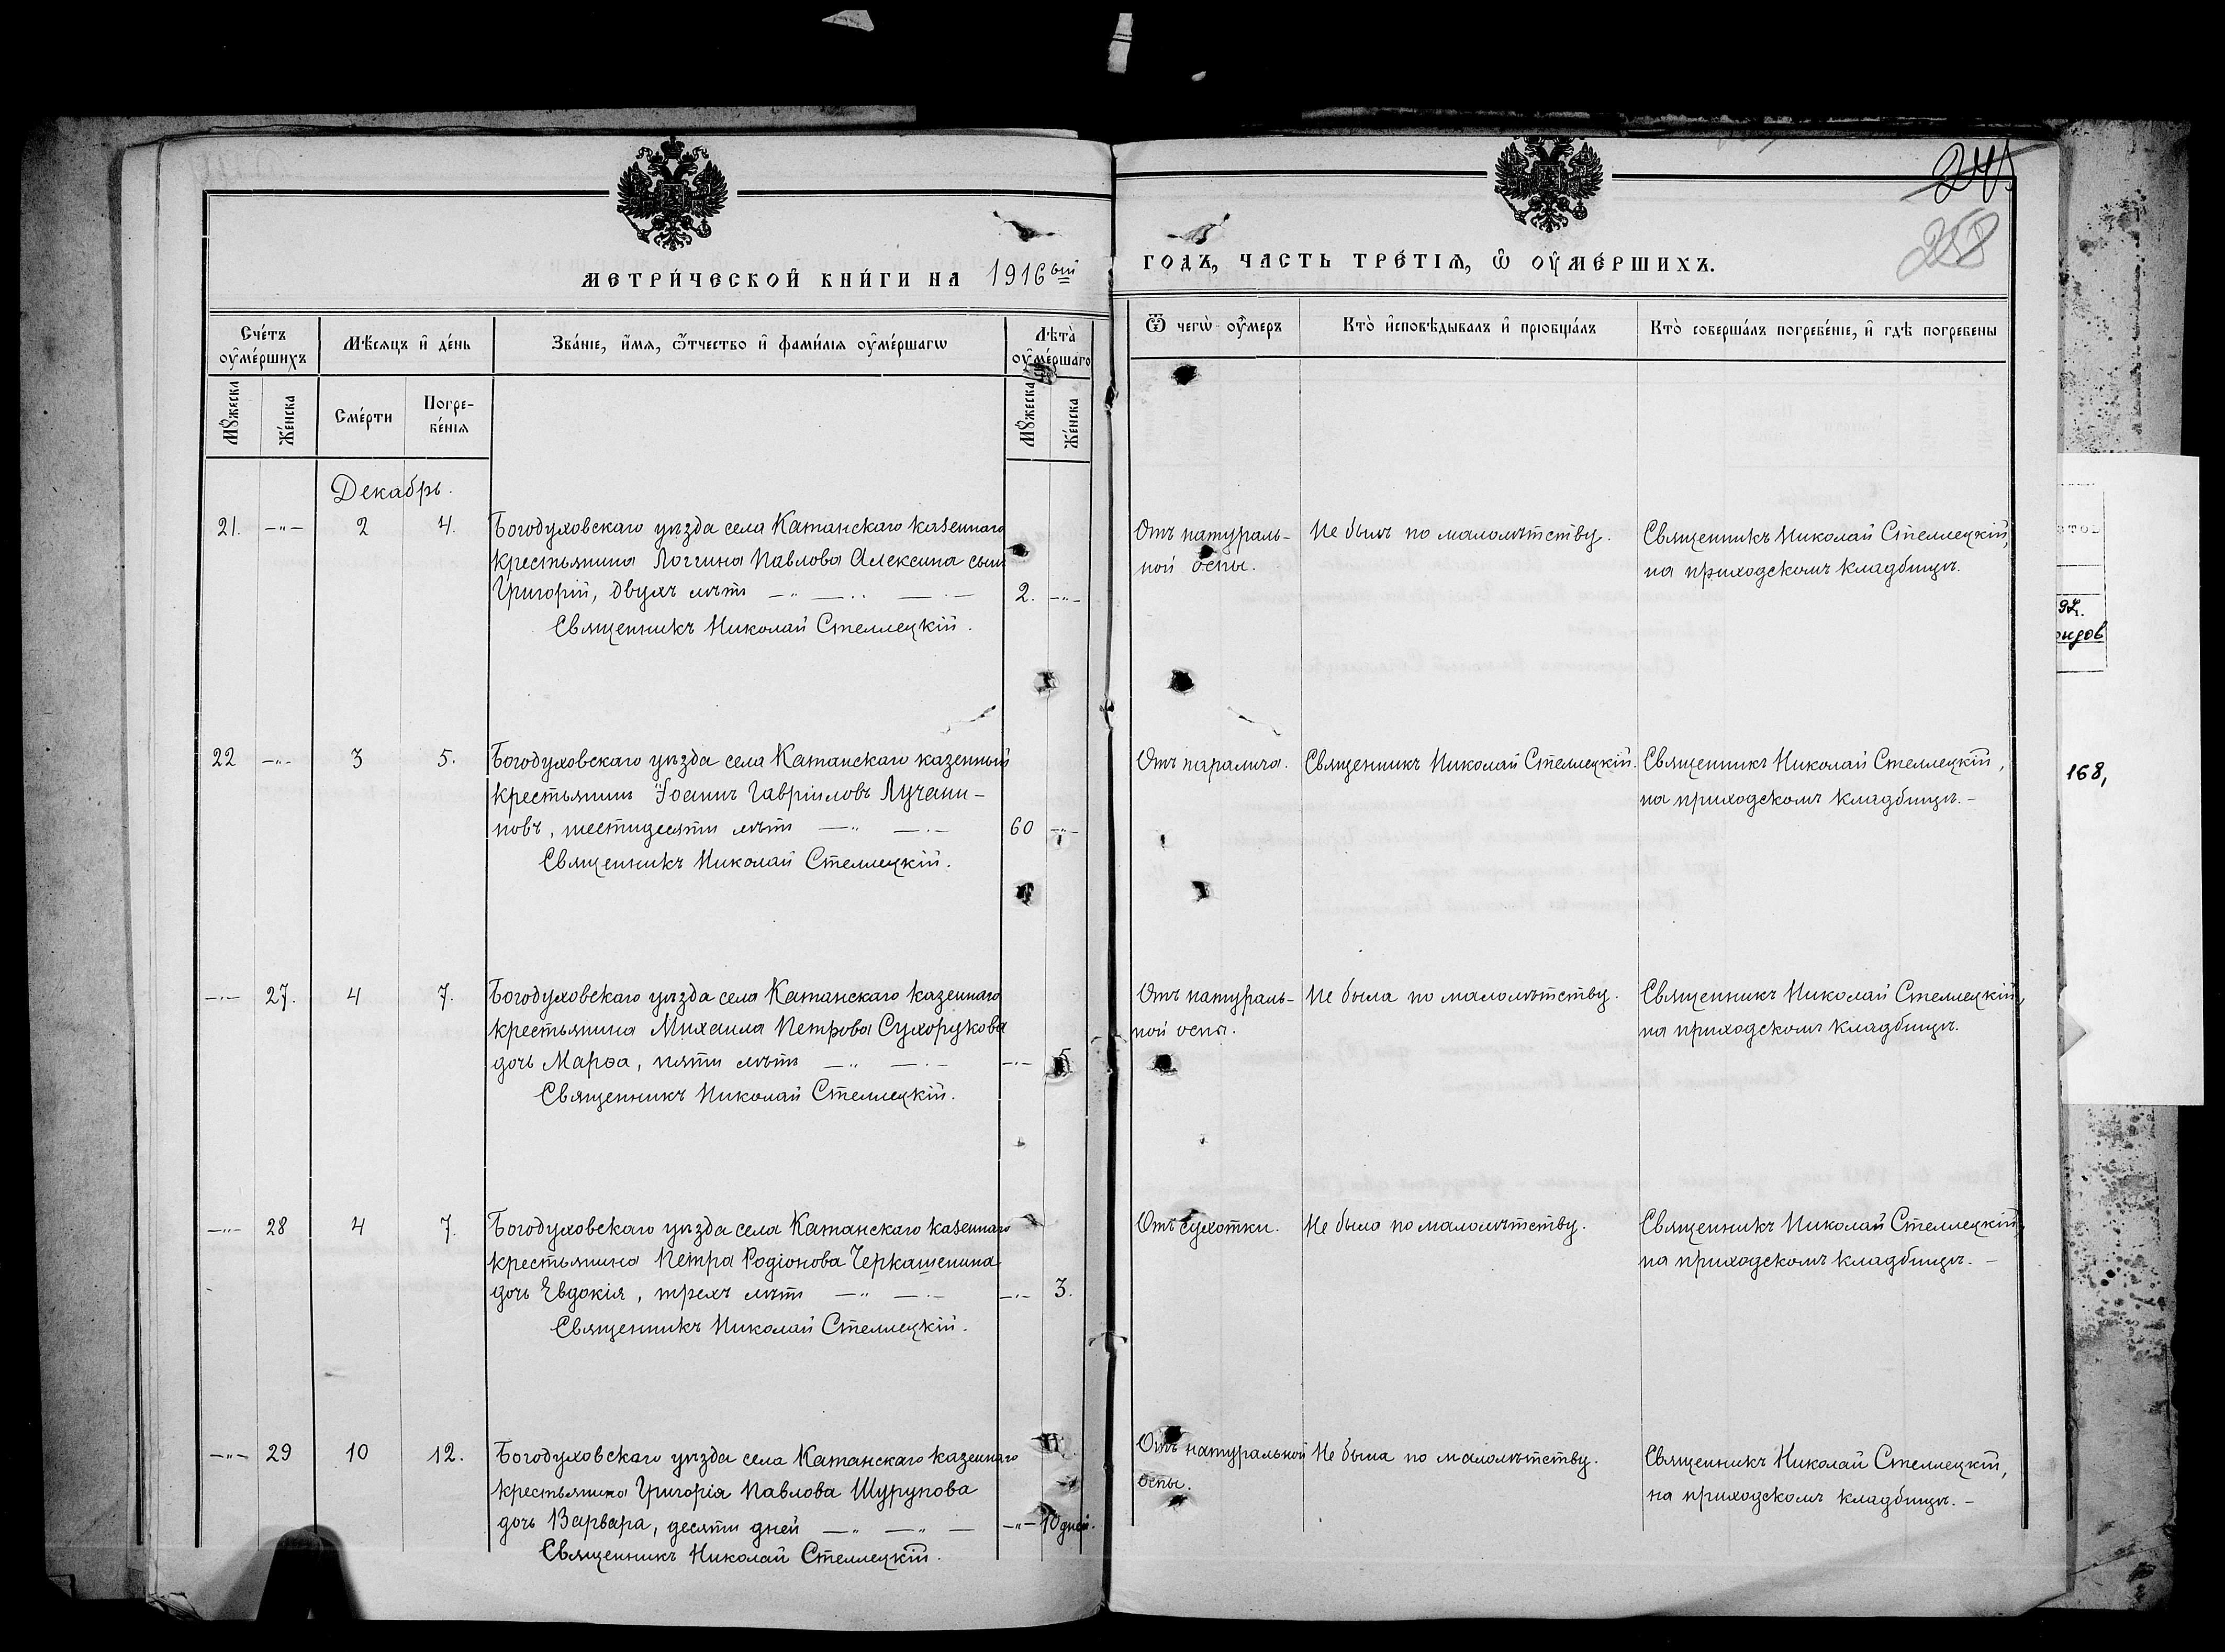 245
258
МЕТРИ́ЧЕСКОЙ КНИ́ГИ НА 1916ый ГОДЪ, ЧАСТЬ ТРЕ́ТІѦ, Ѡ ОУ҆МЕ́РШИХЪ.
Сче́тъ оу҆ме́ршихъ
Мѣ́сѧцъ и҆ де́нь
Зва́ніе, и҆́мѧ, ѻ҆́тчество и҆ фами́лїѧ оу҆ме́ршагѡ
Лѣта̀ оу҆ме́ршагѡ
Ѿ чегѡ̀ оу҆́меръ
Кто̀ и҆сповѣ́дывалъ и҆ прїѡбща́лъ
Кто̀ соверша́лъ погребе́нїе, и҆ гдѣ̀ погребены̀
Мꙋ́жеска
Же́нска
Сме́рти
Погре-
бе́нїѧ
Мꙋ́жеска
Же́нска
Декабрь.
21. —"— 2 4. Богодуховскаго уѣзда села Катанскаго казеннаго
крестьянина Логгина Павлова Алексина сынъ
Григорій, двухъ лѣтъ 2. —"—
Священникъ Николай Стеллецкій.
Отъ натураль-
ной оспы.
Не былъ по малолѣтству.
Священникъ Николай Стеллецкій,
на приходскомъ кладбищѣ.
22 —"— 3 5. Богодуховскаго уѣзда села Катанскаго казенный
крестьянинъ Іоаннъ Гавріиловъ Лучани-
новъ, шестидесяти лѣтъ 60 —"—
Священникъ Николай Стеллецкій.
Отъ паралича.
Священникъ Николай Стеллецкій.
Священникъ Николай Стеллецкій,
на приходскомъ кладбищѣ.—
—"— 27. 4 7. Богодуховскаго уѣзда села Катанскаго казеннаго
крестьянина Михаила Петрова Сухорукова
дочь Марѳа, пяти лѣтъ —"— 5
Священникъ Николай Стеллецкій.
Отъ натураль-
ной оспы.
Не была по малолѣтству.
Священникъ Николай Стеллецкій,
на приходскомъ кладбищѣ.
—"— 28 4 7. Богодуховскаго уѣзда села Катанскаго казеннаго
крестьянина Петра Родіонова Черкашенина
дочь Евдокія, трехъ лѣтъ —"— 3.
Священникъ Николай Стеллецкій.
Отъ сухотки.
Не была по малолѣтству.
Священникъ Николай Стеллецкій,
на приходскомъ кладбищѣ.—
—"— 29 10 12. Богодуховскаго уѣзда села Катанскаго казеннаго
крестьянина Григорія Павлова Шурупова
дочь Варвара, десяти дней —"— 10 дней.
Священникъ Николай Стеллецкій.
Отъ натуральной
оспы.
Не была по малолѣтству.
Священникъ Николай Стеллецкій,
на приходскомъ кладбищѣ.—
168,